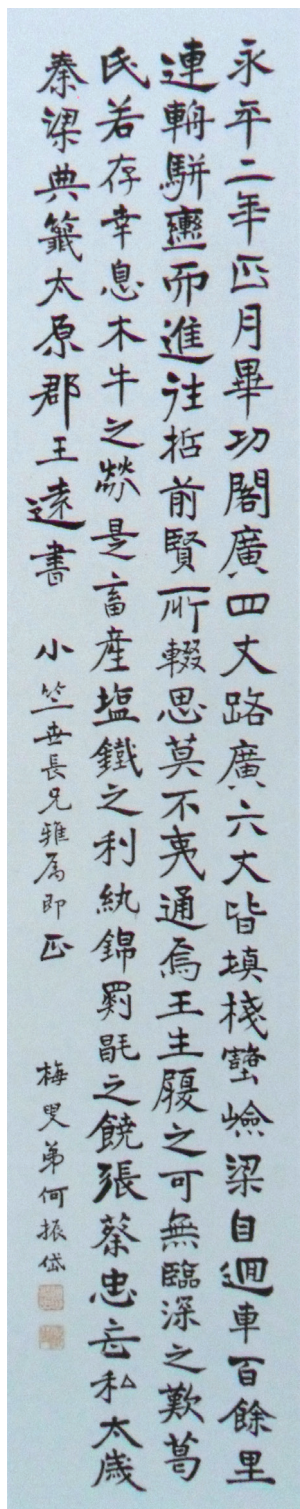 永平二年正月畢功閣廣四丈路廣六丈皆填棧壑嶮梁自迴車百餘里
連輈駢轡而進往哲前賢所輟思莫不夷通焉王生履之可無臨深之歎葛
氏若存幸息木牛之勞是畜產塩鐵之利紈錦罽毼之饒張蔡忠忘私太歲
秦梁典籤太原郡王遠書 小竺世長兄雅属即正 梅叟弟何振岱